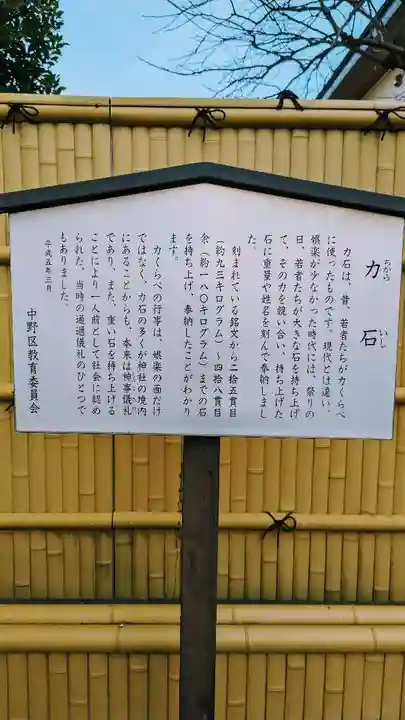 力石
ちから
いし
力石は、昔、若者たちが力くらべ
に使ったものです。現代とは違い、
娯楽が少なかった時代には、祭りの
日、若者たちが大きな石を持ち上げ
て、その力を競い合い、持ち上げた
石に重量や姓名を刻んで奉納しまし
た。
刻まれている銘文から二拾五貫目
(約九三キログラム)～四拾八貫目
余(約一八〇キログラム)までの石
を持ち上げ、奉納したことがわかり
ます。
力くらべの行事は、娯楽の面だけ
ではなく、力石の多くが神社の境内
にあることからも、本来は神事儀礼
であり、また、重い石を持ち上げる
ことにより一人前として社会に認め
られた、当時の通過儀礼のひとつで
もありました。
平成五年三月
中野区教育委員会